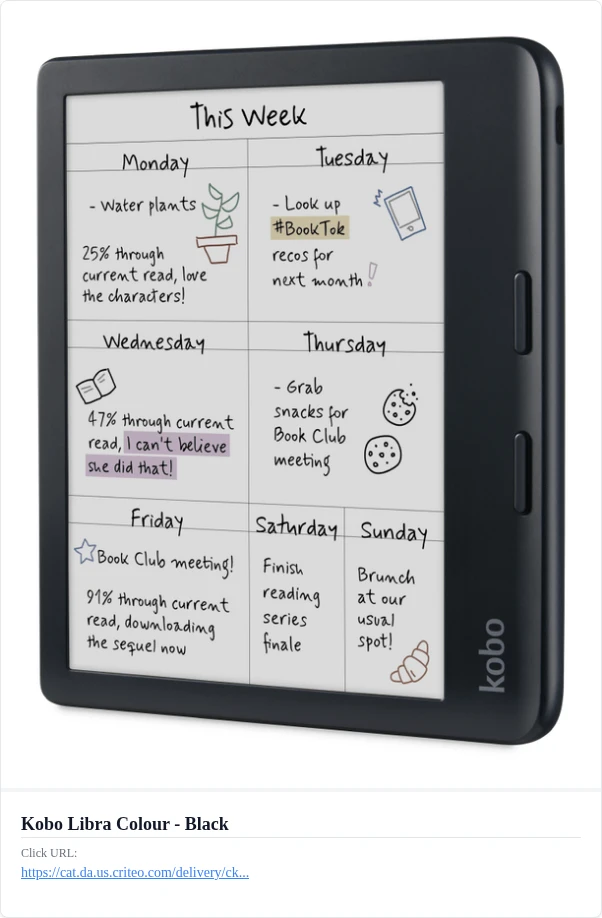 This Week
Monday
- Water plants
25% through
current read, love
the characters!
Tuesday
- Look up
#BookTok
recos for
next month!
Wednesday
47% through current
read, I can't believe
she did that!
Thursday
- Grab
snacks for
Book Club
meeting
Friday
Book Club meeting!
91% through current
read, downloading
the sequel now
Saturday
Finish
reading
series
finale
Sunday
Brunch
at our
usual
spot!
kobo
Kobo Libra Colour - Black
Click URL:
https://cat.da.us.criteo.com/delivery/ck...